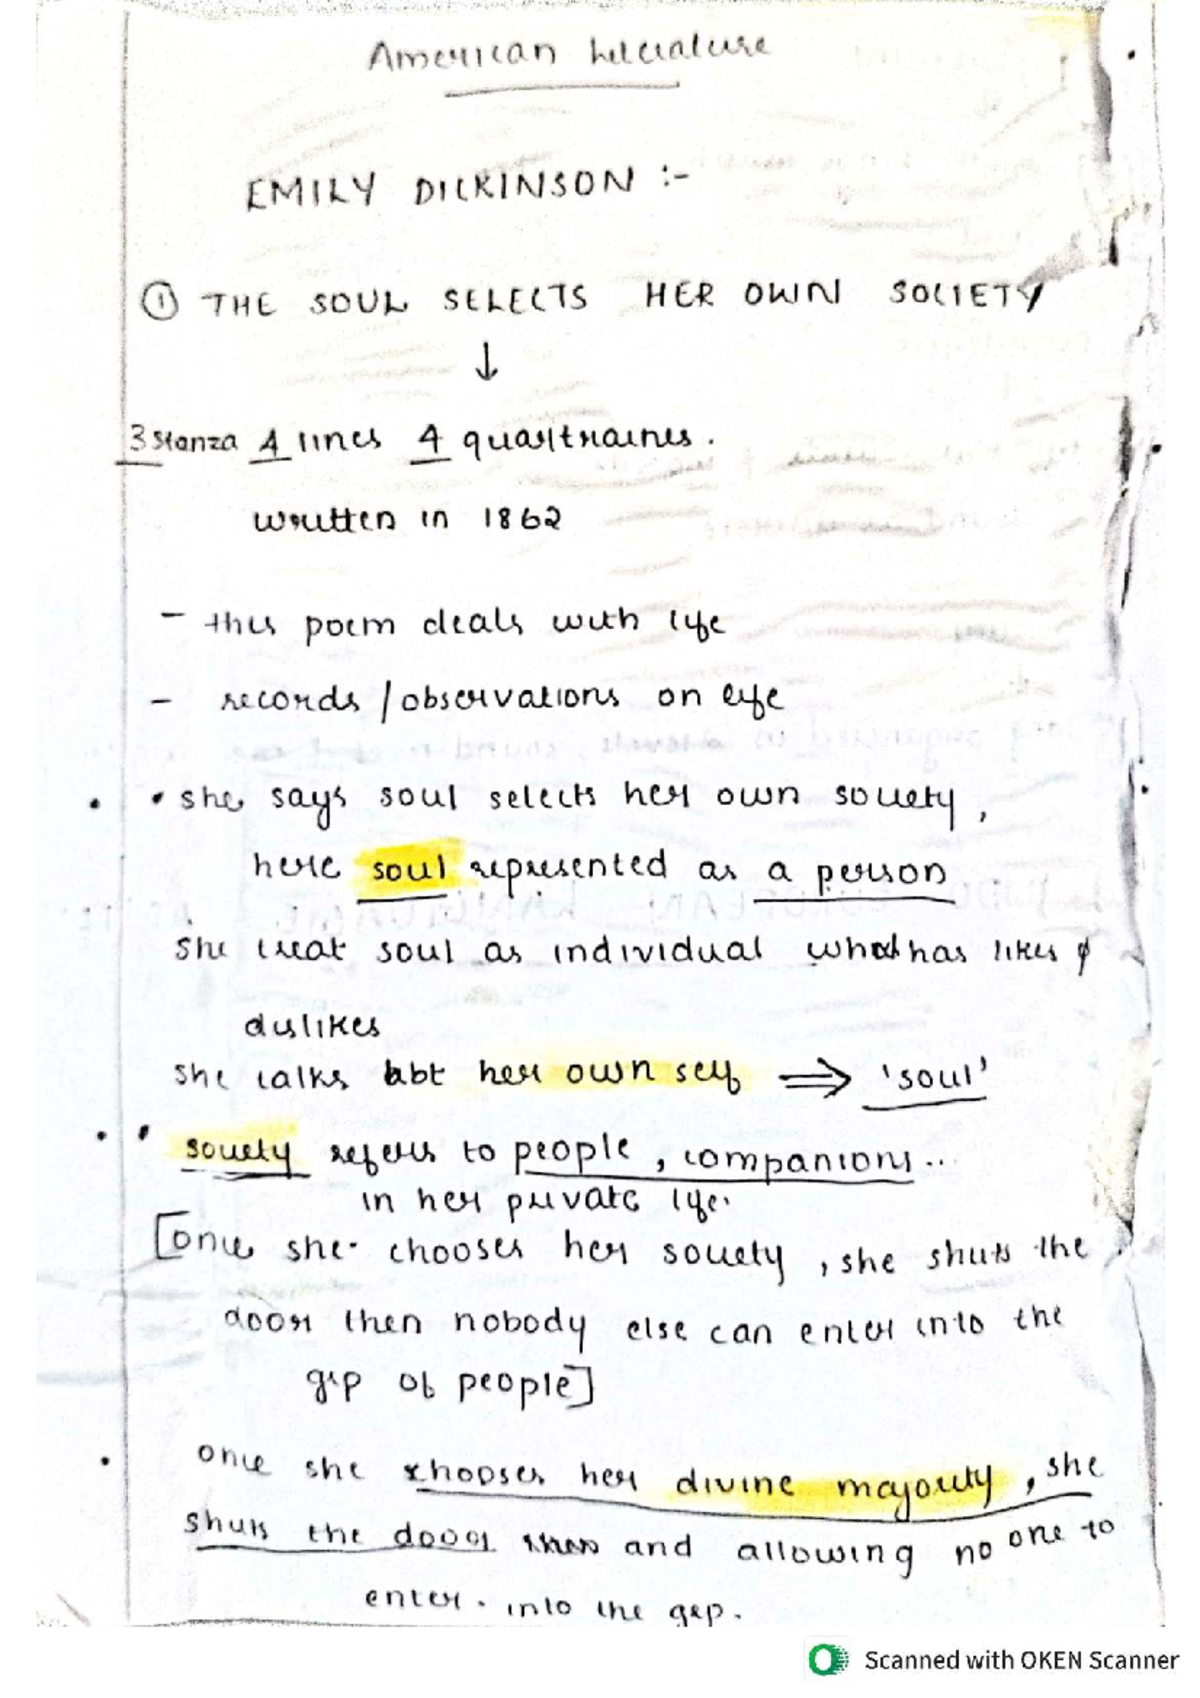 American Literature
EMILY DICKINSON :-
① THE SOUL SELECTS HER OWN SOCIETY
↓
3 stanza 4 lines 4 quartraines.
written in 1862
- this poem deals with life
- records / observations on life
• she says soul selects her own society,
here soul represented as a person
she treat soul as individual who has likes &
dislikes
she talks abt her own self ⇒ 'soul'
• society refers to people, companions...
in her private life.
[once she chooses her society, she shuts the
door then nobody else can enter into the
grp of people]
• once she chooses her divine majority, she
shuts the door and allowing no one to
enter. into the grp.
Scanned with OKEN Scanner